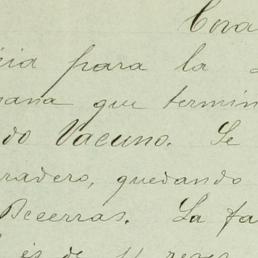 para la
que termin
do Vacuno. Se
radero, quedando
Becerras. La fa
es de